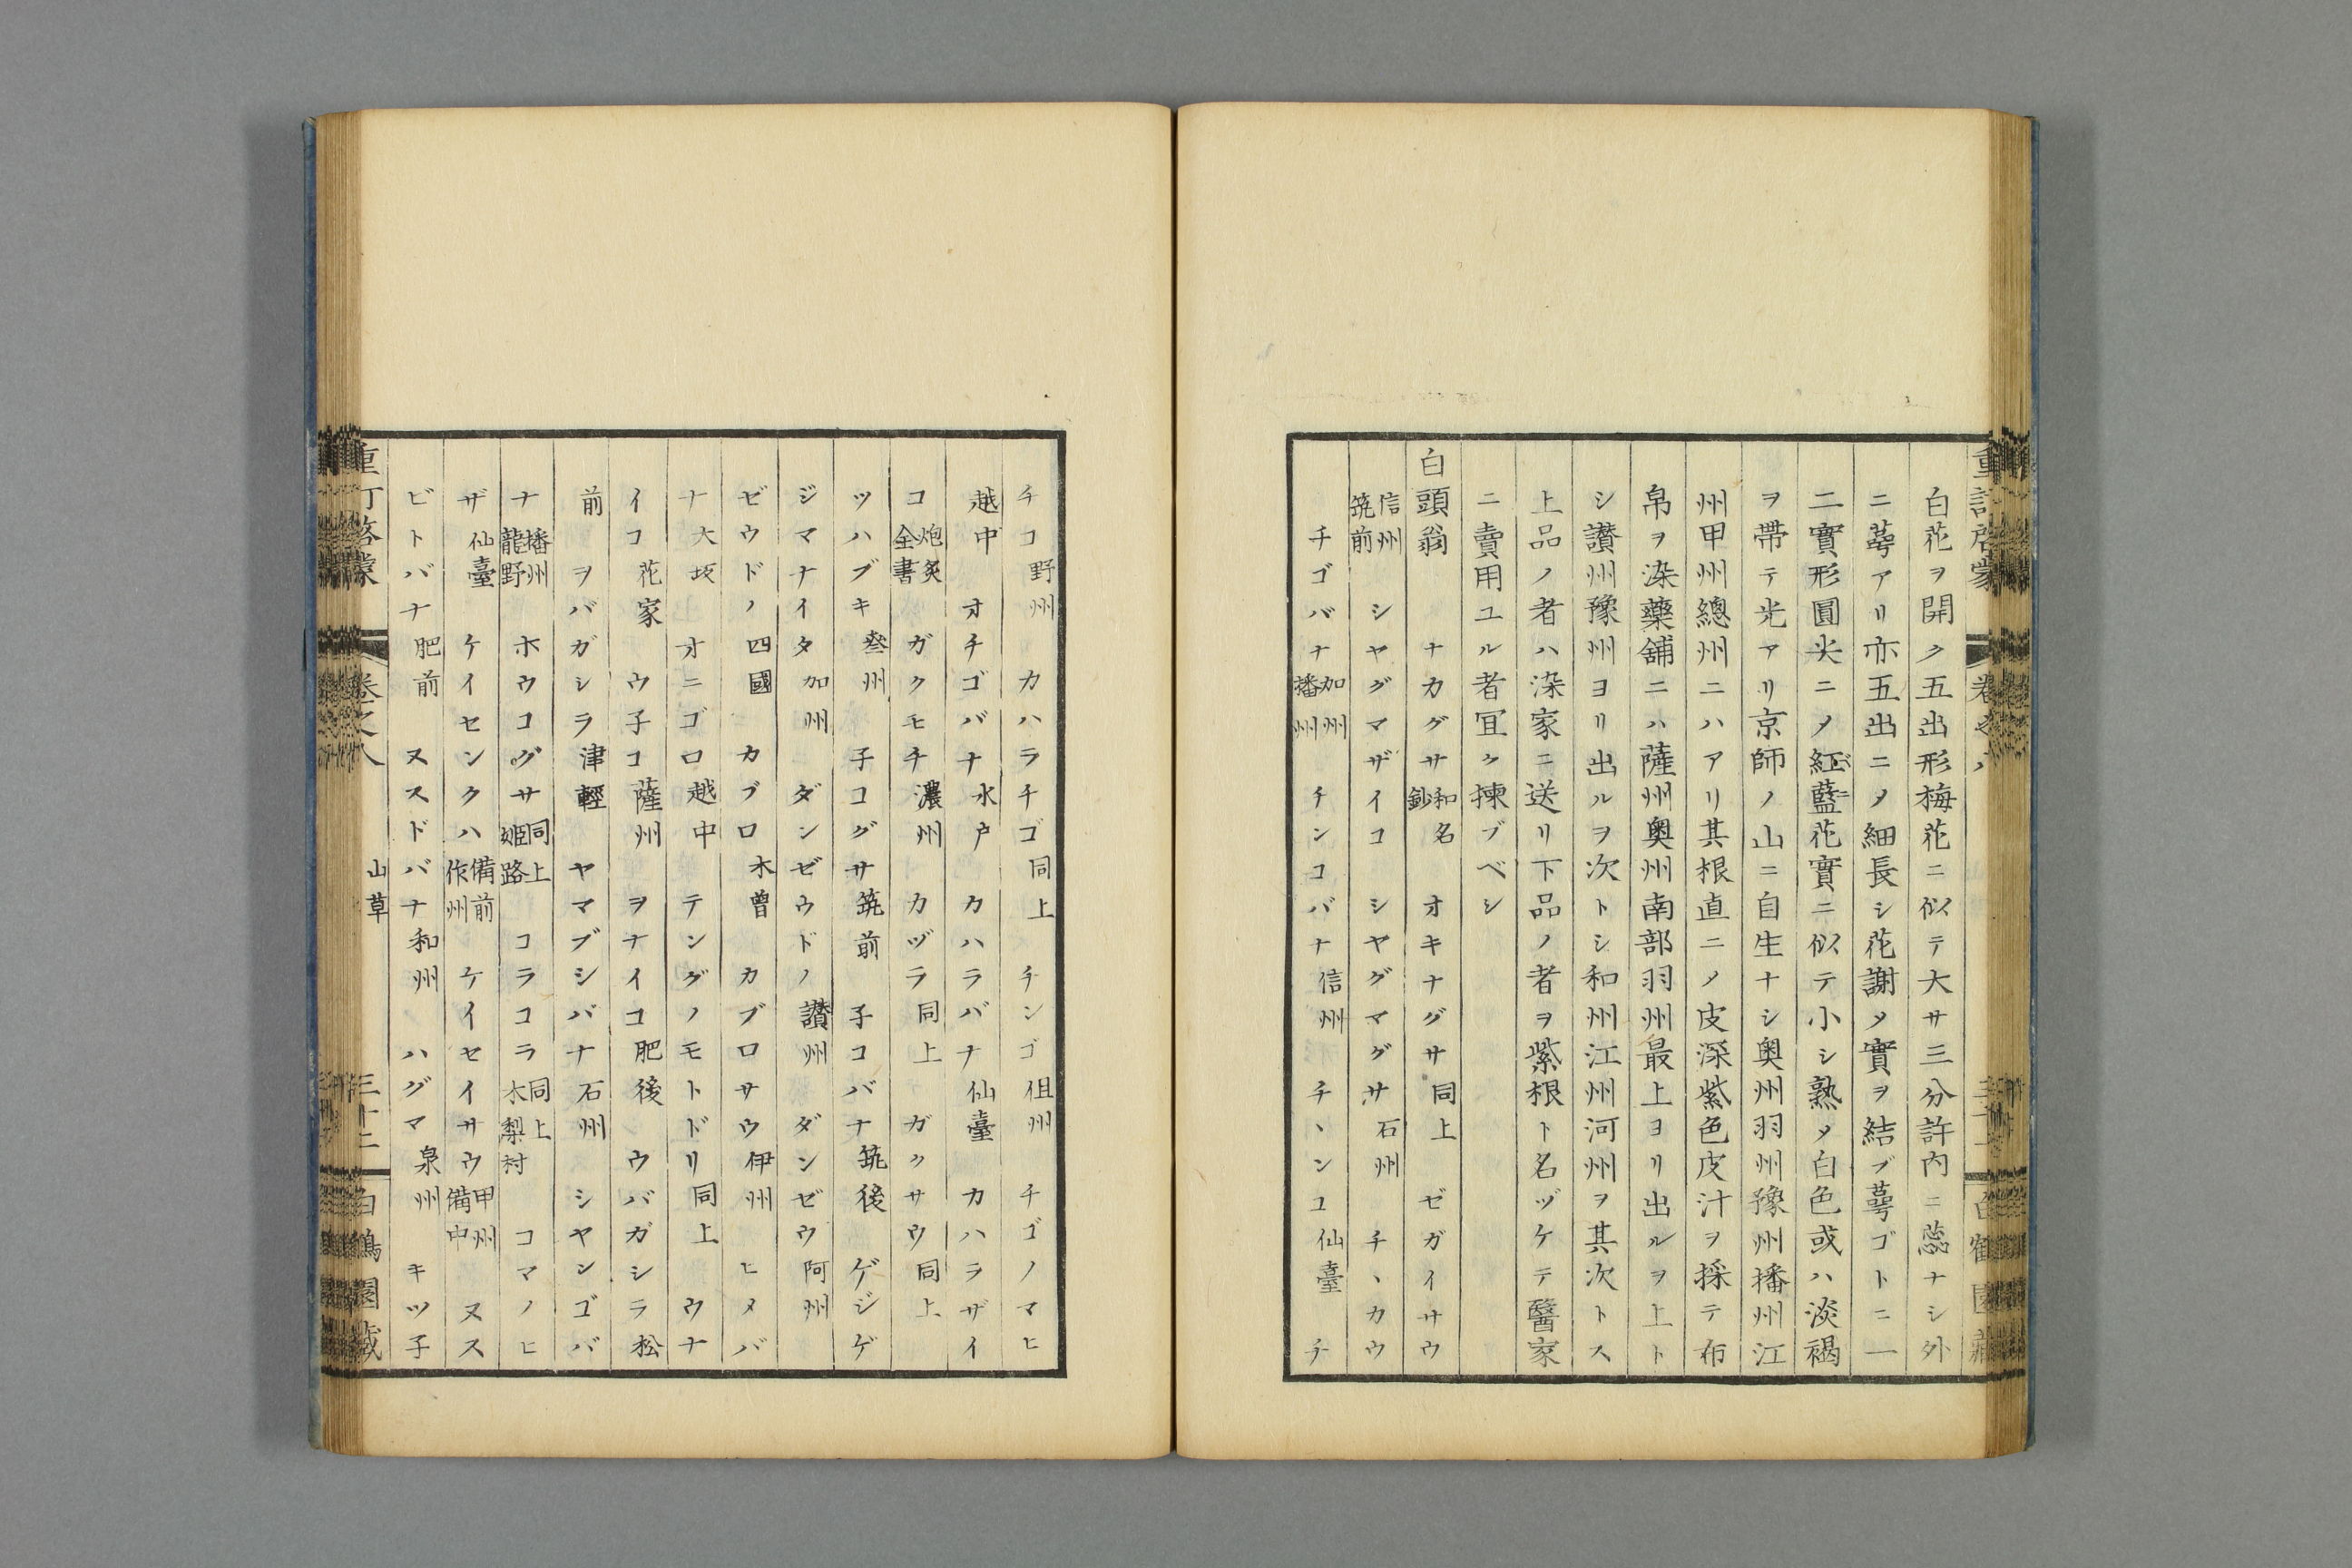 白花ヲ開ク五出形梅花ニ似テ大サ三分許内ニ蕊ナシ外
ニ萼アリ亦五出ニノ細長シ花謝メ實ヲ結ブ萼ゴトニ一
二實形圓尖ニノ紅藍花實ニ似テ小シ熟メ白色或ハ淡褐
ヲ帶テ光アリ京師ノ山ニ自生ナシ奥州羽州豫州播州江
州甲州總州ニハアリ其根直ニノ皮深紫色皮汁ヲ採テ布
帛ヲ染藥舖ニハ薩州奥州南部羽州最上ヨリ出ルヲ上ト
シ讃州豫州ヨリ出ルヲ次トシ和州江州河州ヲ其次トス
上品ノ者ハ染家ニ送リ下品ノ者ヲ紫根ト名ヅケテ醫家
ニ賣用ユル者冝ク揀ブベシ
白頭翁 ナカグサ和名鈔 オキナグサ同上 ゼガイサウ
信州筑前 シヤグマザイコ シヤグマグサ石州 チヽカウ
チゴバナ加州播州 チンコバナ信州 チヽンコ仙臺 チ
チコ野州 カハラチゴ同上 チンゴ但州 チゴノマヒ
越中 オチゴバナ水戸 カハラバナ仙臺 カハラザイ
コ炮炙全書 ガクモチ濃州 カヅラ同上 ガクサウ同上
ツハブキ叄州 子コグサ筑前 子コバナ筑後 ゲジゲ
ジマナイタ加州 ダンゼウドノ讃州 ダンゼウ阿州
ゼウドノ四國 カブロ木曾 カブロサウ伊州 ヒメバ
ナ大坂 オニゴロ越中 テングノモトドリ同上 ウナ
イコ花家 ウ子コ薩州 ヲナイコ肥後 ウバガシラ松
前 ヲバガシラ津輕 ヤマブシバナ石州 シヤンゴバ
ナ播州龍野 ホウコグサ同上姫路 コラコラ同上木梨村 コマノヒ
ザ仙臺 ケイセンクハ備前作州 ケイセイサウ甲州備中 ヌス
ビトバナ肥前 ヌスドバナ和州 ハグマ泉州 キツ子
山草